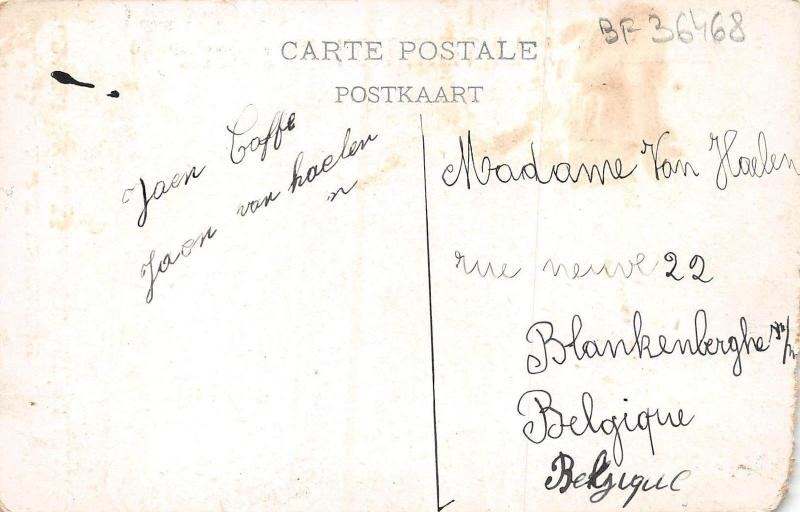 BF 36468
CARTE POSTALE
POSTKAART
Jaen Coffe
Jaon van haelen
n
Madame Van Haelen
rue neuve 22
Blankenberghe
Belgique
Belgique